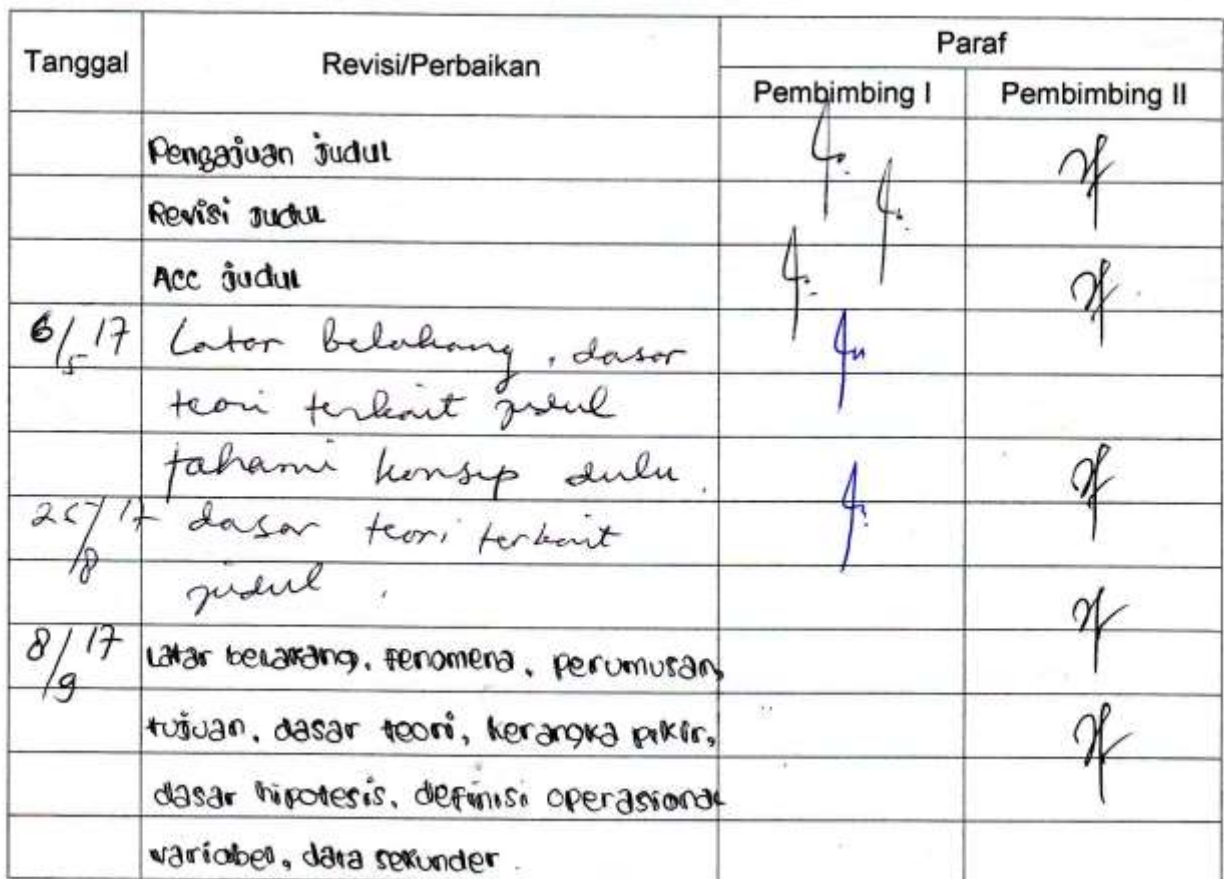 Tanggal Revisi/Perbaikan Paraf
Pembimbing I Pembimbing II
Pengajuan judul
Revisi judul
Acc judul
6/5 17 Latar belakang, dasar
teori terkait judul
fahami konsep dulu.
25/8 17 dasar teori terkait
judul.
8/9 17 Latar belakang, fenomena, perumusan,
tujuan, dasar teori, kerangka pikir,
dasar hipotesis, definisi operasional
variabel, data sekunder.